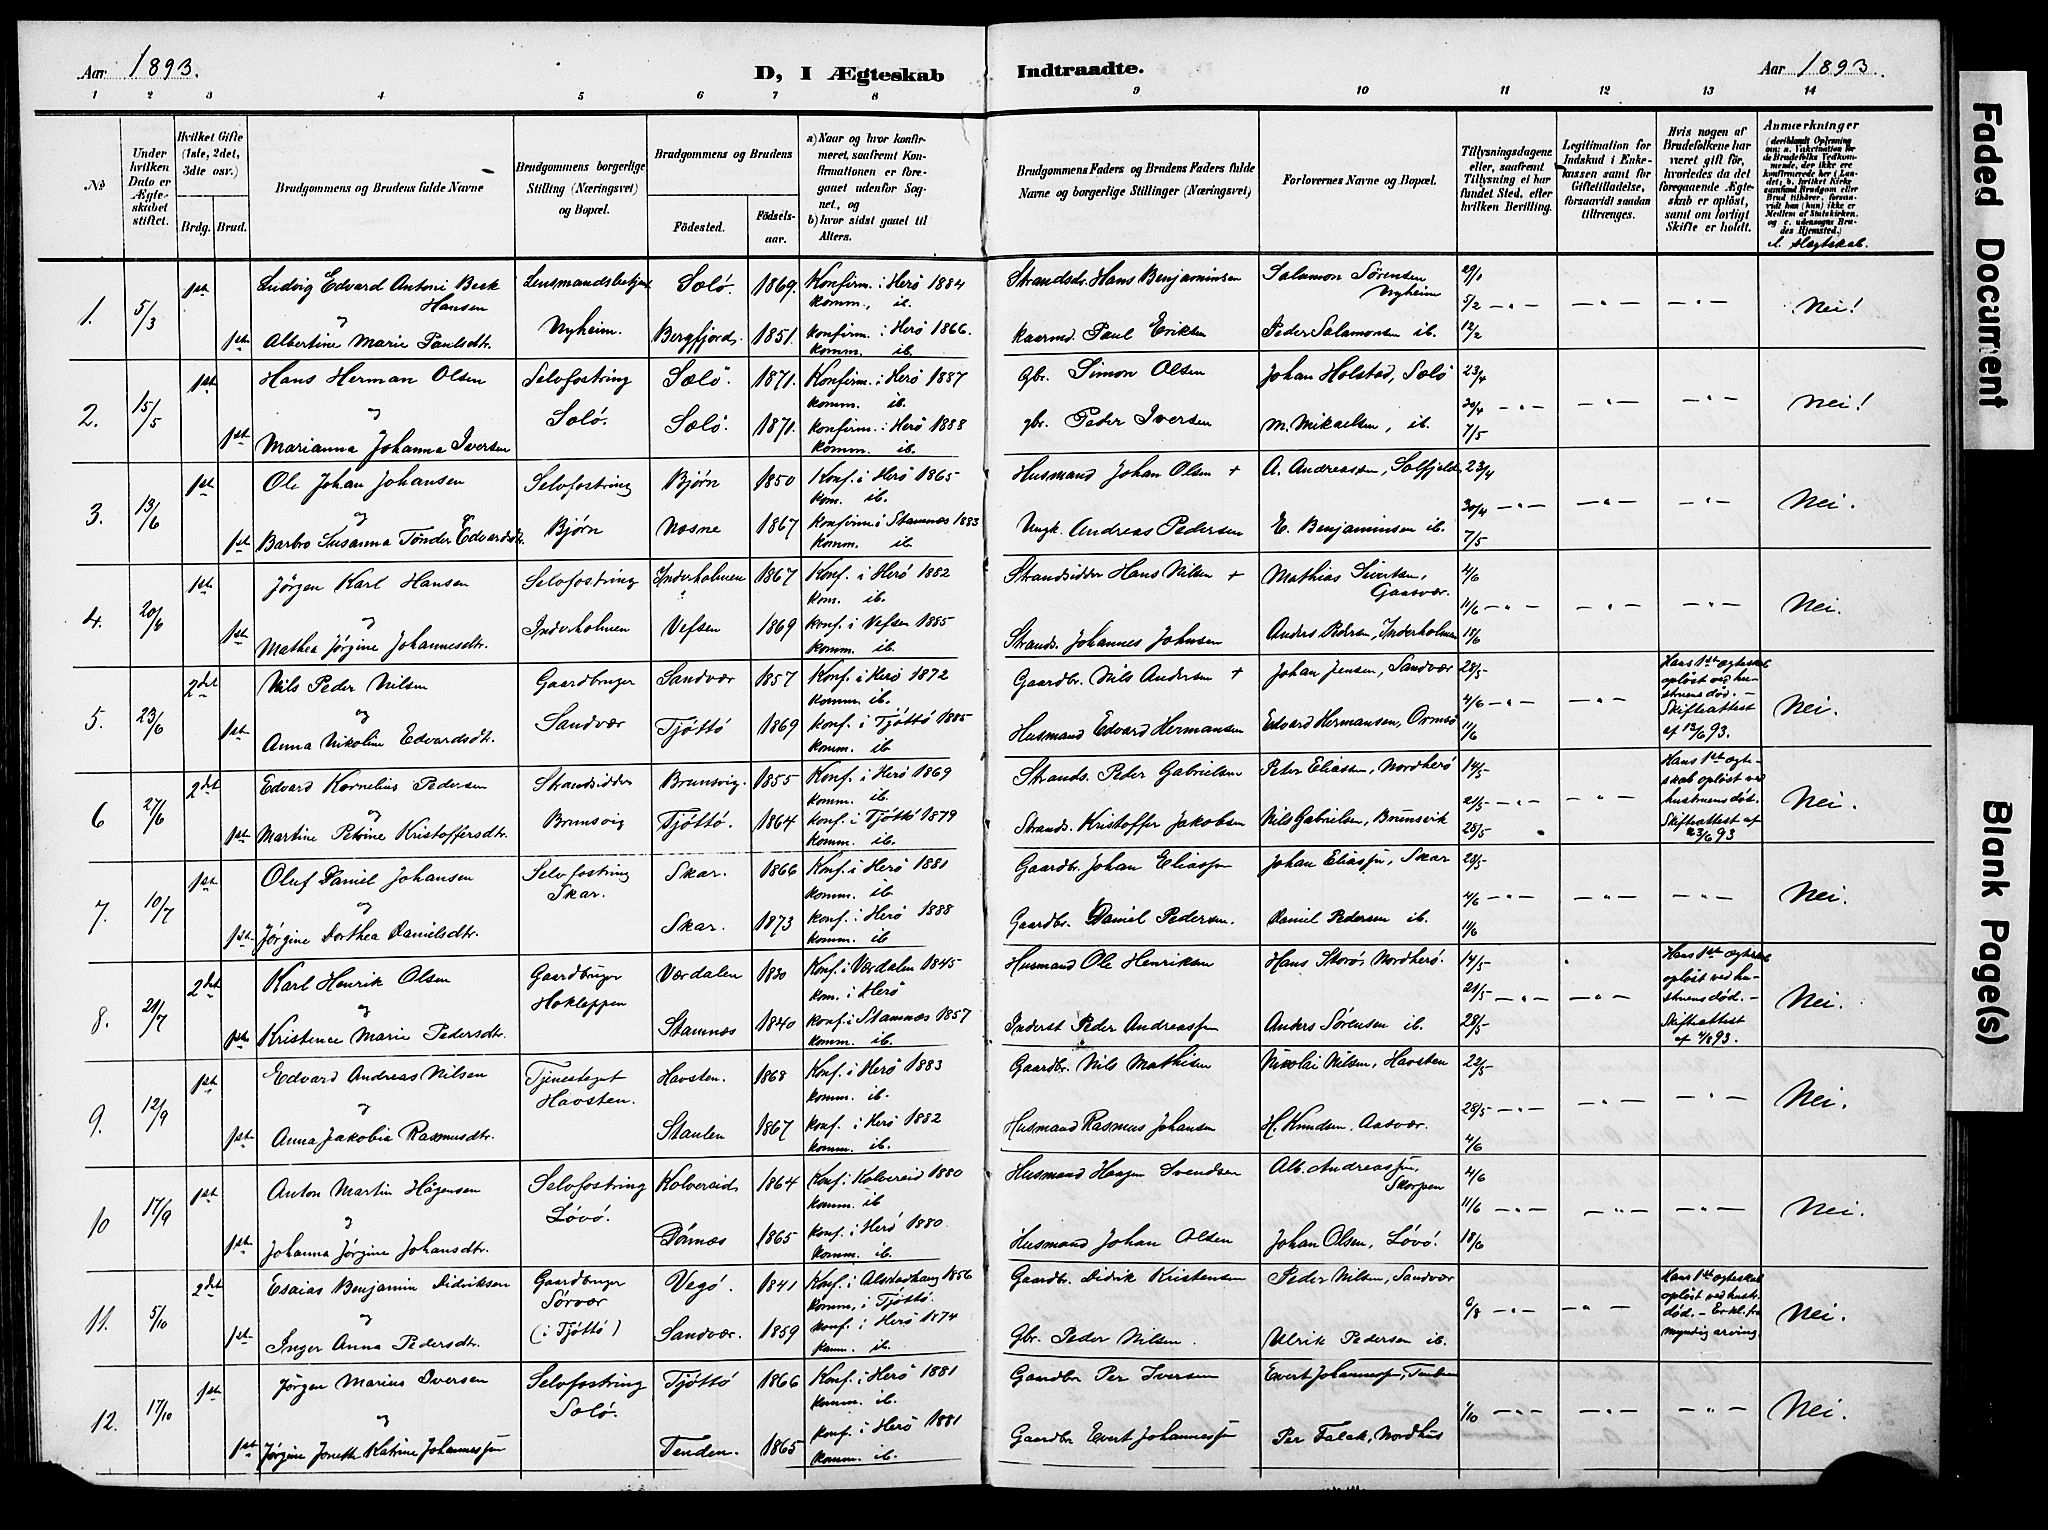 Aar 1893.
D, I Ægteskab Indtraadte.
Aar 1893.
1 2 3 4 5 6 7 8 9 10 11 12 13 14
No
Under hvilken Dato er Ægteskabet stiftet.
Hvilket Gifte (1ste, 2det, 3die osv.)
Brdg. Brud.
Brudgommens og Brudens fulde Navne
Brudgommens borgerlige Stilling (Næringsvei) og Bopæl.
Brudgommens og Brudens
Fødested.
Fødselsaar.
a) Naar og hvor konfirmeret, saafremt Konfirmationen er foregaaet udenfor Sognet, og
b) hvor sidst gaaet til Alters.
Brudgommens Faders og Brudens Faders fulde Navne og borgerlige Stillinger (Næringsvei)
Forlovernes Navne og Bopæl.
Tillysningsdagene eller, saafremt Tillysning ei har fundet Sted, efter hvilken Bevilling.
Legitimation for Indskud i Enkekassen samt for Giftetilladelse, forsaavidt saadan tiltrænges.
Hvis nogen af Brudefolkene har været gift før, hvorledes da det foregaaende Ægteskab er opløst, samt om lovligt Skifte er holdt.
Anmærkninger
(deriblandt Oplysning om: a. Vakcination for de Brudefolks Vedkommende, der ikke ere konfirmerede her i Landet, b. hvilket Kirkesamfund Brudgom eller Brud tilhører, forsaavidt han (hun) ikke er Medlem af Statskirken, og c. udensogns Brudes Hjemsted.)
d. slægtskab.
1. 5/3 1ste Ludvig Edvard Antoni Beck Hansen Lensmandsbetjent Sælø. 1869. Konfirm. i Herø 1884 komm., ib. Strandsdr. Hans Benjaminsen Salamon Sørensen Nyheim 29/1
og Nyheim. 5/2 — " — — " — — " — Nei!
1ste Albertine Marie Paulsdtr. Bergfjord. 1851. Konfirm. i Herø 1866. komm. ib. Kaarmd. Paul Eriksen Peder Salamonsen ib. 12/2
2. 15/5 1ste Hans Herman Olsen Selvfostring Sælø. 1871. Konfirm. i Herø 1887 komm. ib. Gbr. Simon Olsen Johan Holstad, Sælø 23/4
og Sælø. 30/4 — " — — " — — " — Nei!
1ste Marianna Johanna Iversen Sælø. 1871. Konfirm. i Herø 1888 komm. ib. gbr. Peder Iversen M. Mikaelsen, ib. 7/5
3. 13/6 1ste Ole Johan Johansen Selvfostring Bjørn 1850 Konf. i Herø 1865 kom. ib. Husmand Johan Olsen + A. Andreassen, Solfjeld 23/4
og Bjørn 30/4 — " — — " — — " — Nei.
1ste Barbro Susanna Tønder Edvardsdtr. Næsne 1867 Konfirm. i Stamnæs 1883 komm. ib. Ungk. Andreas Pedersen E. Benjaminsen ib. 7/5
4. 20/6 1ste Jørgen Karl Hansen Selvfostring Inderholmen 1867 Konf. i Herø 1882 kom. ib. Strandsidder Hans Nilsen + Mathias Sivertsen, Gaasvær. 4/6
og Inderholmen 11/6 — " — — " — — " — Nei.
1ste Mathea Jørgine Johannesdtr. Vefsen 1869 Konf. i Vefsen 1885 komm. ib. Strands. Johannes Johnsen Anders Pedersen, Inderholmen 18/6
5. 23/6 2det Nils Peder Nilsen Gaardbruger Sandvær 1857 Konf. i Herø 1872 komm. ib. Gaardbr. Nils Andersen + Johan Jensen, Sandvær 28/5
og Sandvær 4/6 — " — — " — Hans 1ste ægteskab opløst ved hustruens død. — Skifteattest af 12/6 93. Nei.
1ste Anna Nikoline Edvardsdtr. Tjøttø 1869 Konf. i Tjøttø 1885 komm. ib Husmand Edvard Hermansen Edvard Hermansen, Ormsø 11/6
6 27/6 2det Edvard Kornelius Pedersen Strandsidder Brunsvig. 1855 Konf. i Herø 1869 komm. ib. Strands. Peder Gabrielsen Peter Eliassen, Nordherø 14/5
og Brunsvig 21/5 — " — — " — Hans 1ste ægteskab opløst ved hustruens død. Skifteattest af 23/6 93 Nei.
1ste Martine Petrine Kristoffersdtr. Tjøttø. 1864 Konf. i Tjøttø 1879 komm. ib. Strands. Kristoffer Jakobsen Nils Gabrielsen, Brunsvik 28/5
7. 10/7 1ste Oluf Daniel Johansen Selvfostring Skar. Skar. 1866 Konf. i Herø 1881 komm. ib. Gaardbr. Johan Eliassen Johan Eliassen, Skar 28/5
og 4/6 — " — — " — — " — Nei.
1ste Jørgine Dorthea Danielsdtr. Skar. 1873 Konf. i Herø 1888 komm. ib Gaardbr. Daniel Pedersen. Daniel Pedersen ib. 11/6
8. 21/7 2det Karl Henrik Olsen Gaardbruger Hokleppen Værdalen 1830 Konf. i Værdalen 1845 kom. i Herø Husmand Ole Henriksen Hans Storø, Nordherø. 14/5
og 21/5 — " — — " — Hans 1ste ægteskab opløst ved hustruens død. — Skifteattest af 4/8 93. Nei.
1ste Kristence Marie Pedersdtr. Stamnæs 1840 Konf. i Stamnæs 1857 komm. ib. Inderst Peder Andreassen Anders Sørensen ib. 28/5
9. 12/9 1ste Edvard Andreas Nilsen Tjenestegut Havsten. Havsten. 1868 Konf. i Herø 1883 komm. ib. Gaardbr. Nils Mathisen Nikolai Nilsen, Havsten 22/5
og 28/5 — " — — " — — " — Nei.
1ste Anna Jakobia Rasmusdtr. Staulen 1867 Konf. i Herø 1882 komm. ib. Husmand Rasmus Johansen H. Knudsen, Aasvær. 4/6
10 17/9 1ste Anton Martin Hågensen Selvfostring Løvø. Kolvereid 1864 Konf. i Kolvereid 1880 komm. ib Husmand Haagen Svendsen Alb. Andreassen, Skorpen 4/6
og 11/6 — " — — " — — " — Nei.
1ste Johanna Jørgine Johansdtr. Dønnæs 1865 Konf. i Herø 1880. komm. ib. Husmand Johan Olsen Johan Olsen, Løvø. 18/6
11. 5/10 2det Esaias Benjamin Didriksen Gaardbruger Sørvær (i Tjøttø) Vegø. 1841 Konf. i Alstadhaug 1856 komm. i Tjøttø. Gaardbr. Didrik Kristensen Peder Nilsen, Sandvær
og 6/8 — " — — " — Hans 1ste ægteskab opløst ved hustr. død. — Erkl. fra myndig arving. Nei.
1ste Inger Anna Pedersdtr. Sandvær. 1859 Konf. i Herø 1874 komm. ib. Gbr. Peder Nilsen. Ulrik Pedersen ib.
12. 17/10 1ste Jørgen Marius Iversen Selvfostring Sælø. Tjøttø 1866 Konf. i Herø 1881 komm. ib. Gaardbr Per Iversen Evert Johannessen, Tenden
og 1/10 — " — — " — — " — Nei.
1ste Jørgine Jonette Katrine Johannessen Tenden. 1865 Konf. i Herø 1881 komm. ib. Gaardbr Evert Johannessen Per Falck, Nordhus
Faded Document
Blank Page(s)